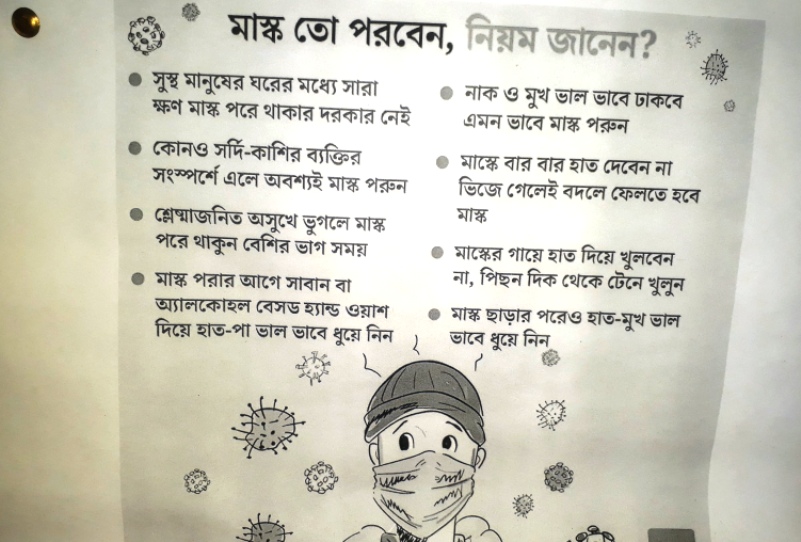 মাস্ক তো পরবেন, নিয়ম জানেন?
সুস্থ মানুষের ঘরের মধ্যে সারা
ক্ষণ মাস্ক পরে থাকার দরকার নেই
কোনও সর্দি-কাশির ব্যক্তির
সংস্পর্শে এলে অবশ্যই মাস্ক পরুন
শ্লেষ্মাজনিত অসুখে ভুগলে মাস্ক
পরে থাকুন বেশির ভাগ সময়
মাস্ক পরার আগে সাবান বা
অ্যালকোহল বেসড হ্যান্ড ওয়াশ
দিয়ে হাত-পা ভাল ভাবে ধুয়ে নিন
নাক ও মুখ ভাল ভাবে ঢাকবে
এমন ভাবে মাস্ক পরুন
মাস্কে বার বার হাত দেবেন না
ভিজে গেলেই বদলে ফেলতে হবে
মাস্ক
মাস্কের গায়ে হাত দিয়ে খুলবেন
না, পিছন দিক থেকে টেনে খুলুন
মাস্ক ছাড়ার পরেও হাত-মুখ ভাল
ভাবে ধুয়ে নিন